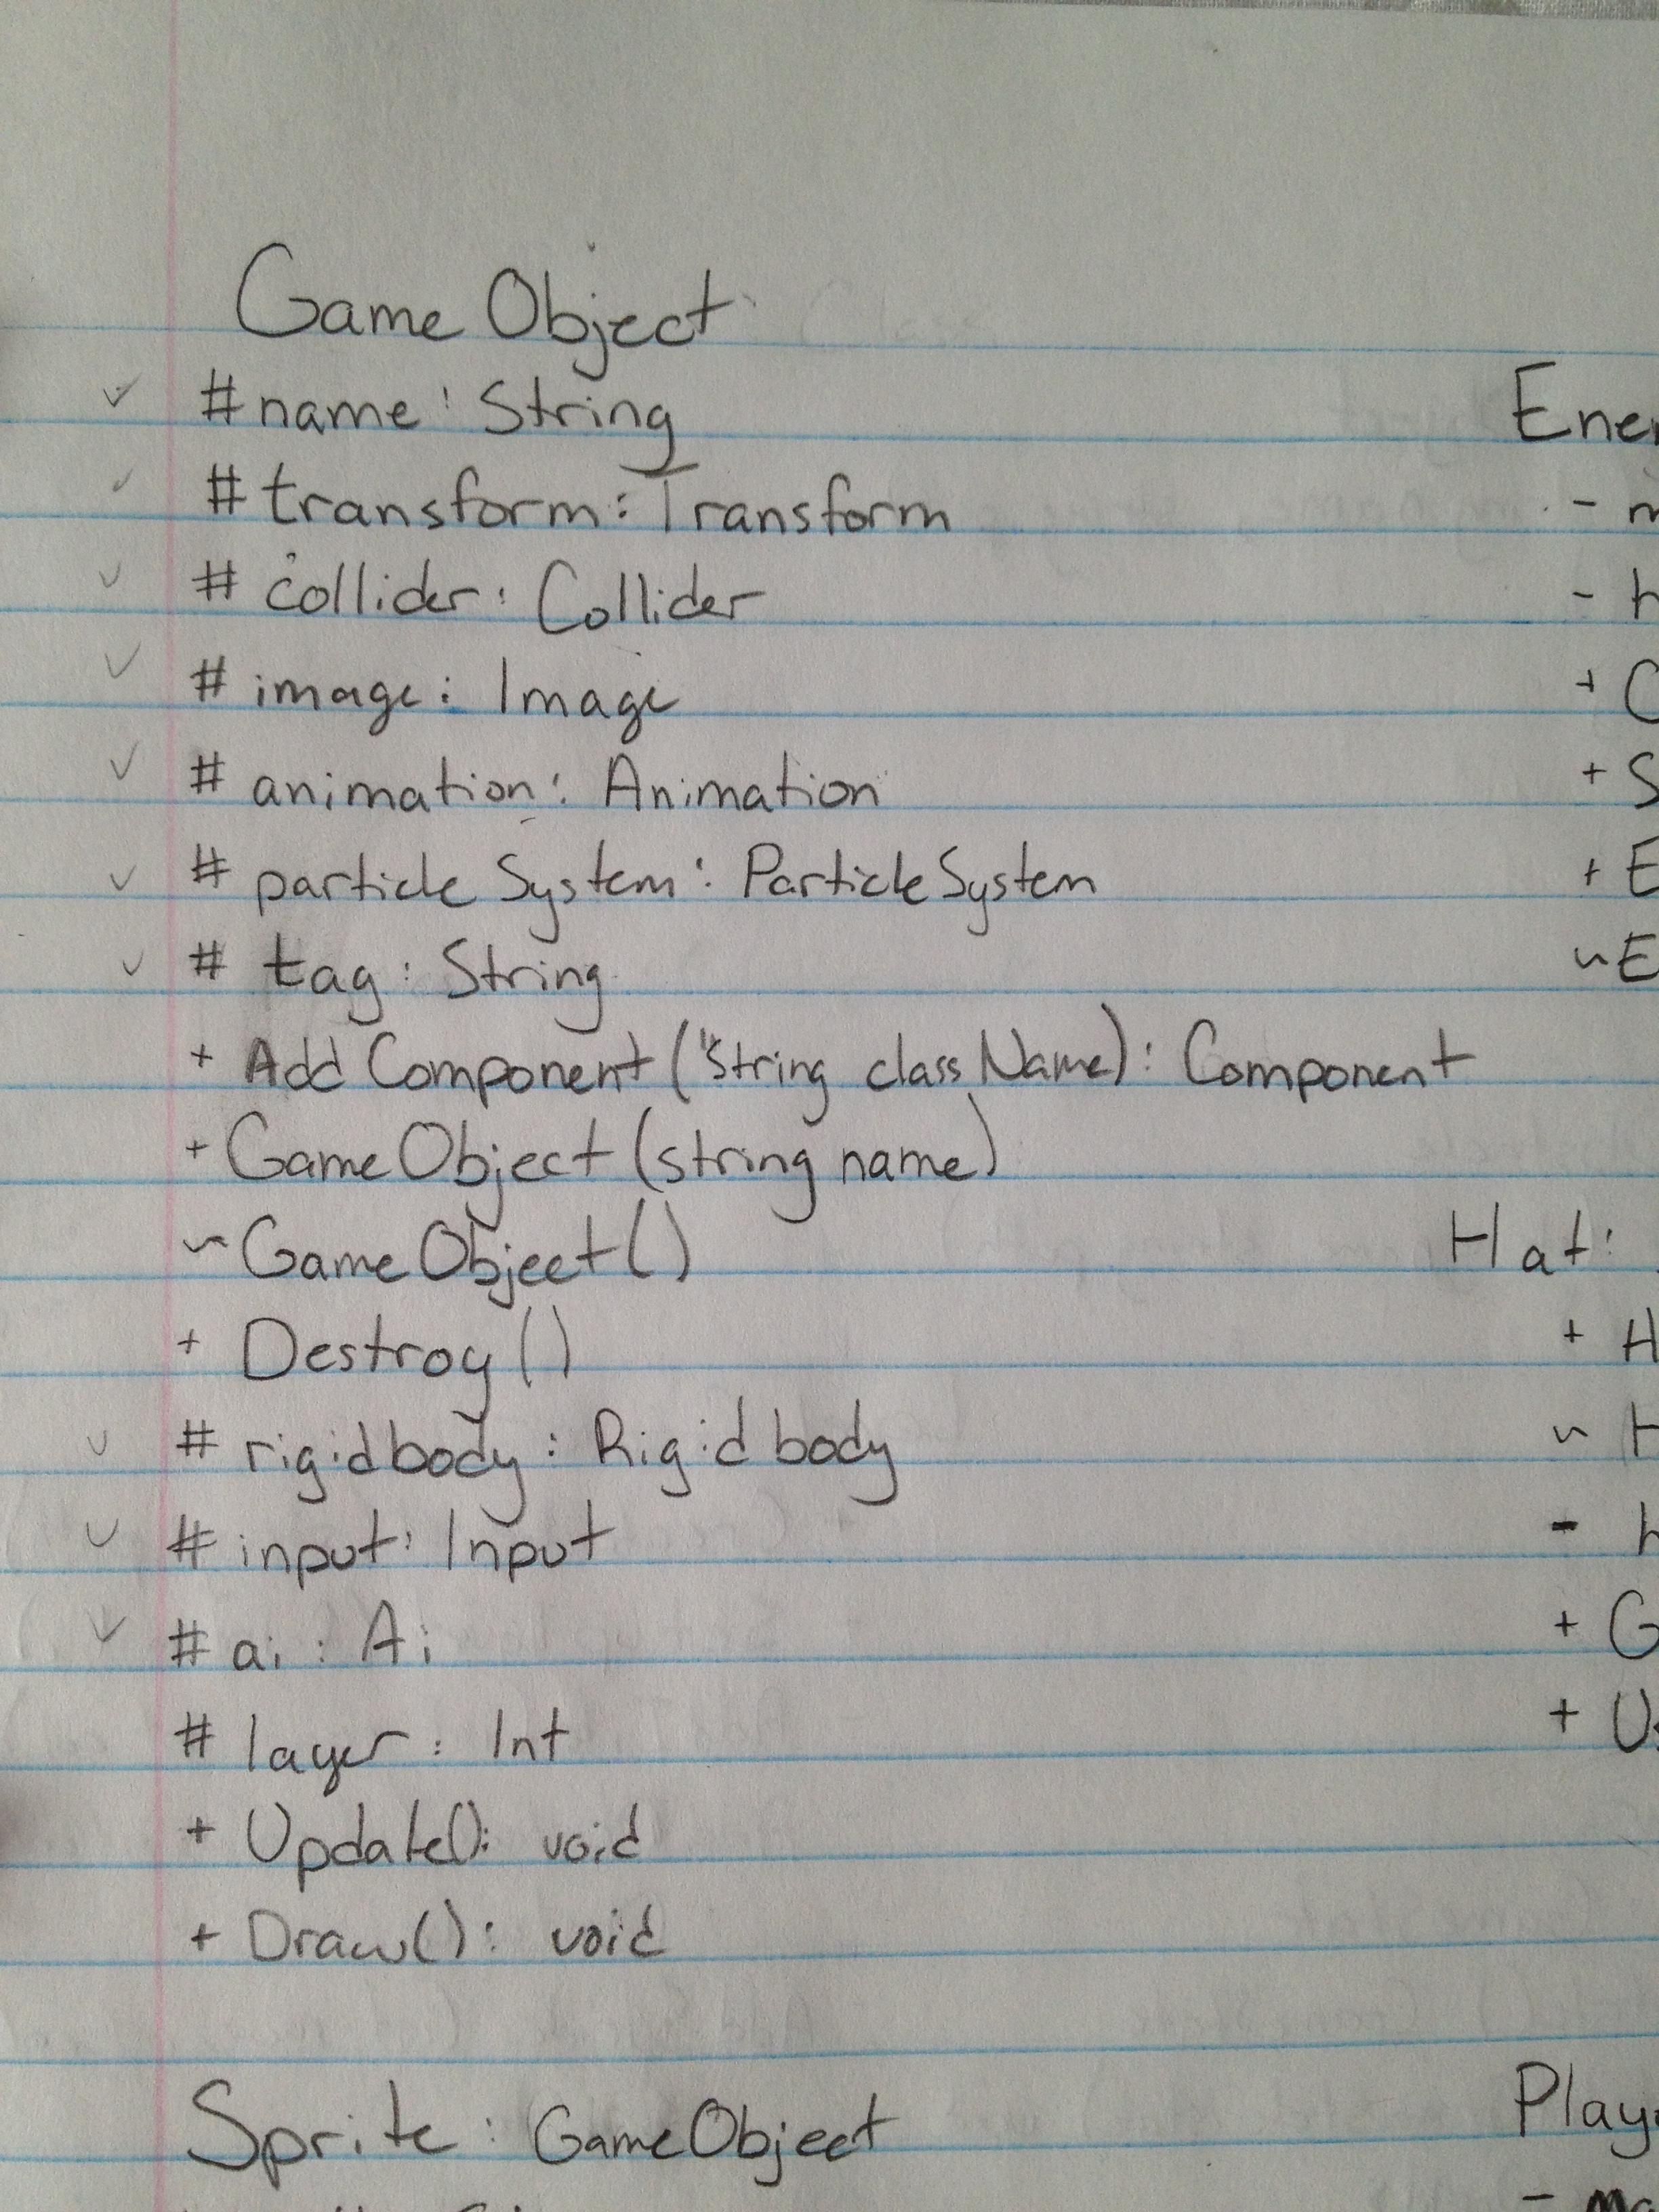 GameObject
✓ # name : String
✓ # transform : Transform
✓ # collider : Collider
✓ # image : Image
✓ # animation : Animation
✓ # particleSystem : ParticleSystem
✓ # tag : String
+ AddComponent("String className) : Component
+ GameObject(string name)
~ GameObject()
+ Destroy()
✓ # rigidbody : Rigidbody
✓ # input : Input
✓ # ai : Ai
# layer : Int
+ Update() : void
+ Draw() : void
Sprite : GameObject
Hat :